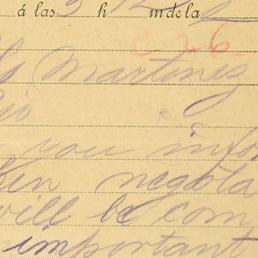 á las 3 h m de la
C 26
Martinez
you info
negotia
will be com
important